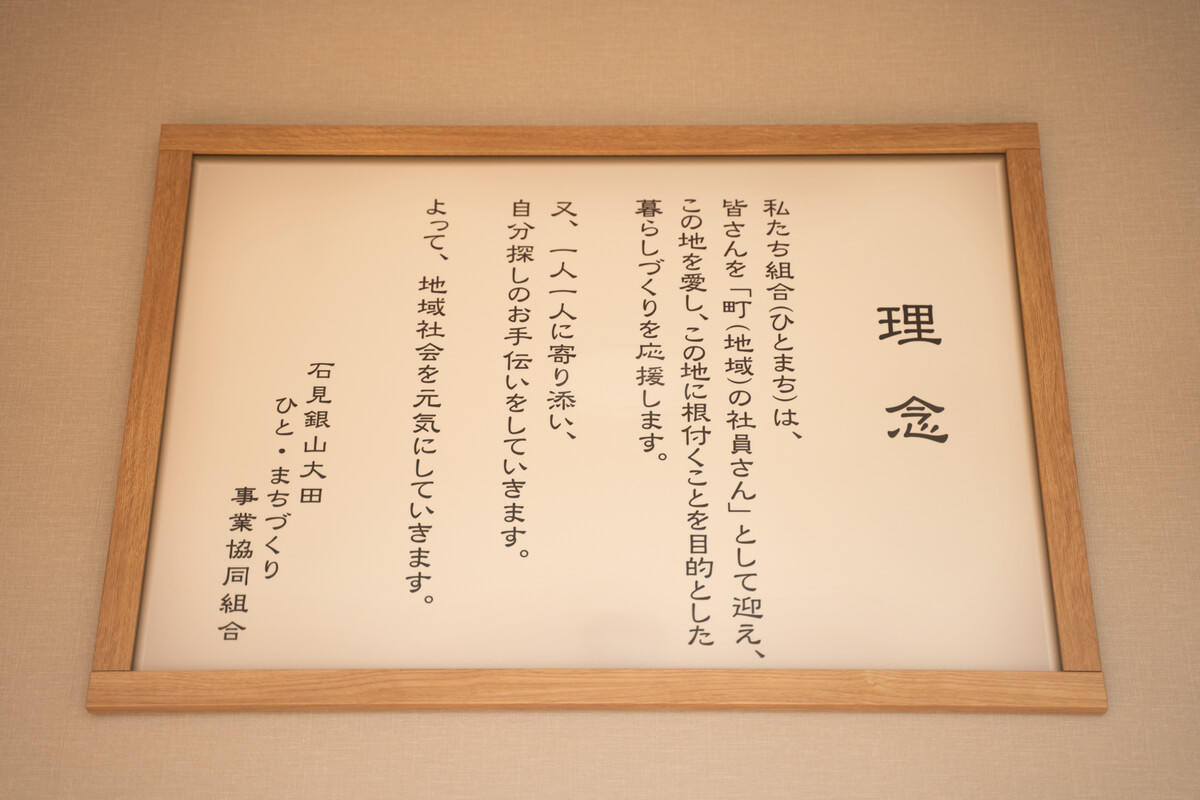 理念
私たち組合(ひとまち)は、
皆さんを「町(地域)の社員さん」として迎え、
この地を愛し、この地に根付くことを目的とした
暮らしづくりを応援します。
又、一人一人に寄り添い、
自分探しのお手伝いをしていきます。
よって、地域社会を元気にしていきます。
石見銀山大田
ひと・まちづくり
事業協同組合